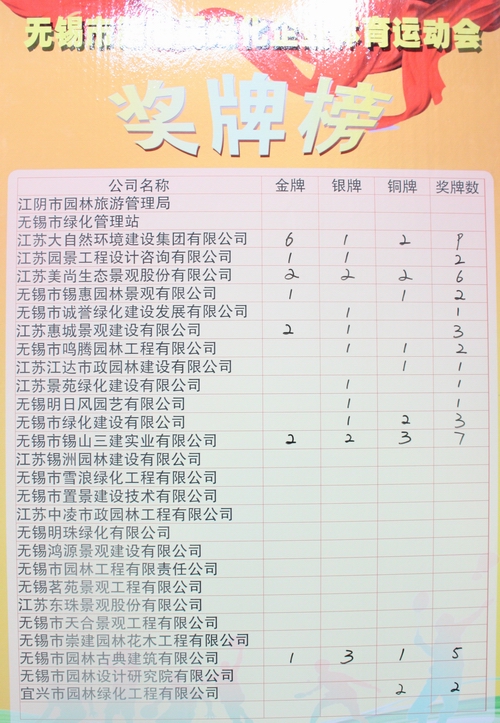 无锡市 化企 体育运动会
奖牌榜
公司名称 金牌 银牌 铜牌 奖牌数
江阴市园林旅游管理局
无锡市绿化管理站
江苏大自然环境建设集团有限公司 6 1 2 9
江苏园景工程设计咨询有限公司 1 1 2
江苏美尚生态景观股份有限公司 2 2 2 6
无锡市锡惠园林景观有限公司 1 1 2
无锡市诚誉绿化建设发展有限公司 1 1
江苏惠城景观建设有限公司 2 1 3
无锡市鸣腾园林工程有限公司 1 1 2
江苏江达市政园林建设有限公司 1 1
江苏景苑绿化建设有限公司 1 1
无锡明日风园艺有限公司 1 1
无锡市绿化建设有限公司 1 2 3
无锡市锡山三建实业有限公司 2 2 3 7
江苏锡洲园林建设有限公司
无锡市雪浪绿化工程有限公司
无锡市置景建设技术有限公司
江苏中凌市政园林工程有限公司
无锡明珠绿化有限公司
无锡鸿源景观建设有限公司
无锡市园林工程有限责任公司
无锡茗苑景观工程有限公司
江苏东珠景观股份有限公司
无锡市天合景观工程有限公司
无锡市崇建园林花木工程有限公司
无锡市园林古典建筑有限公司 1 3 1 5
无锡市园林设计研究院有限公司
宜兴市园林绿化工程有限公司 2 2